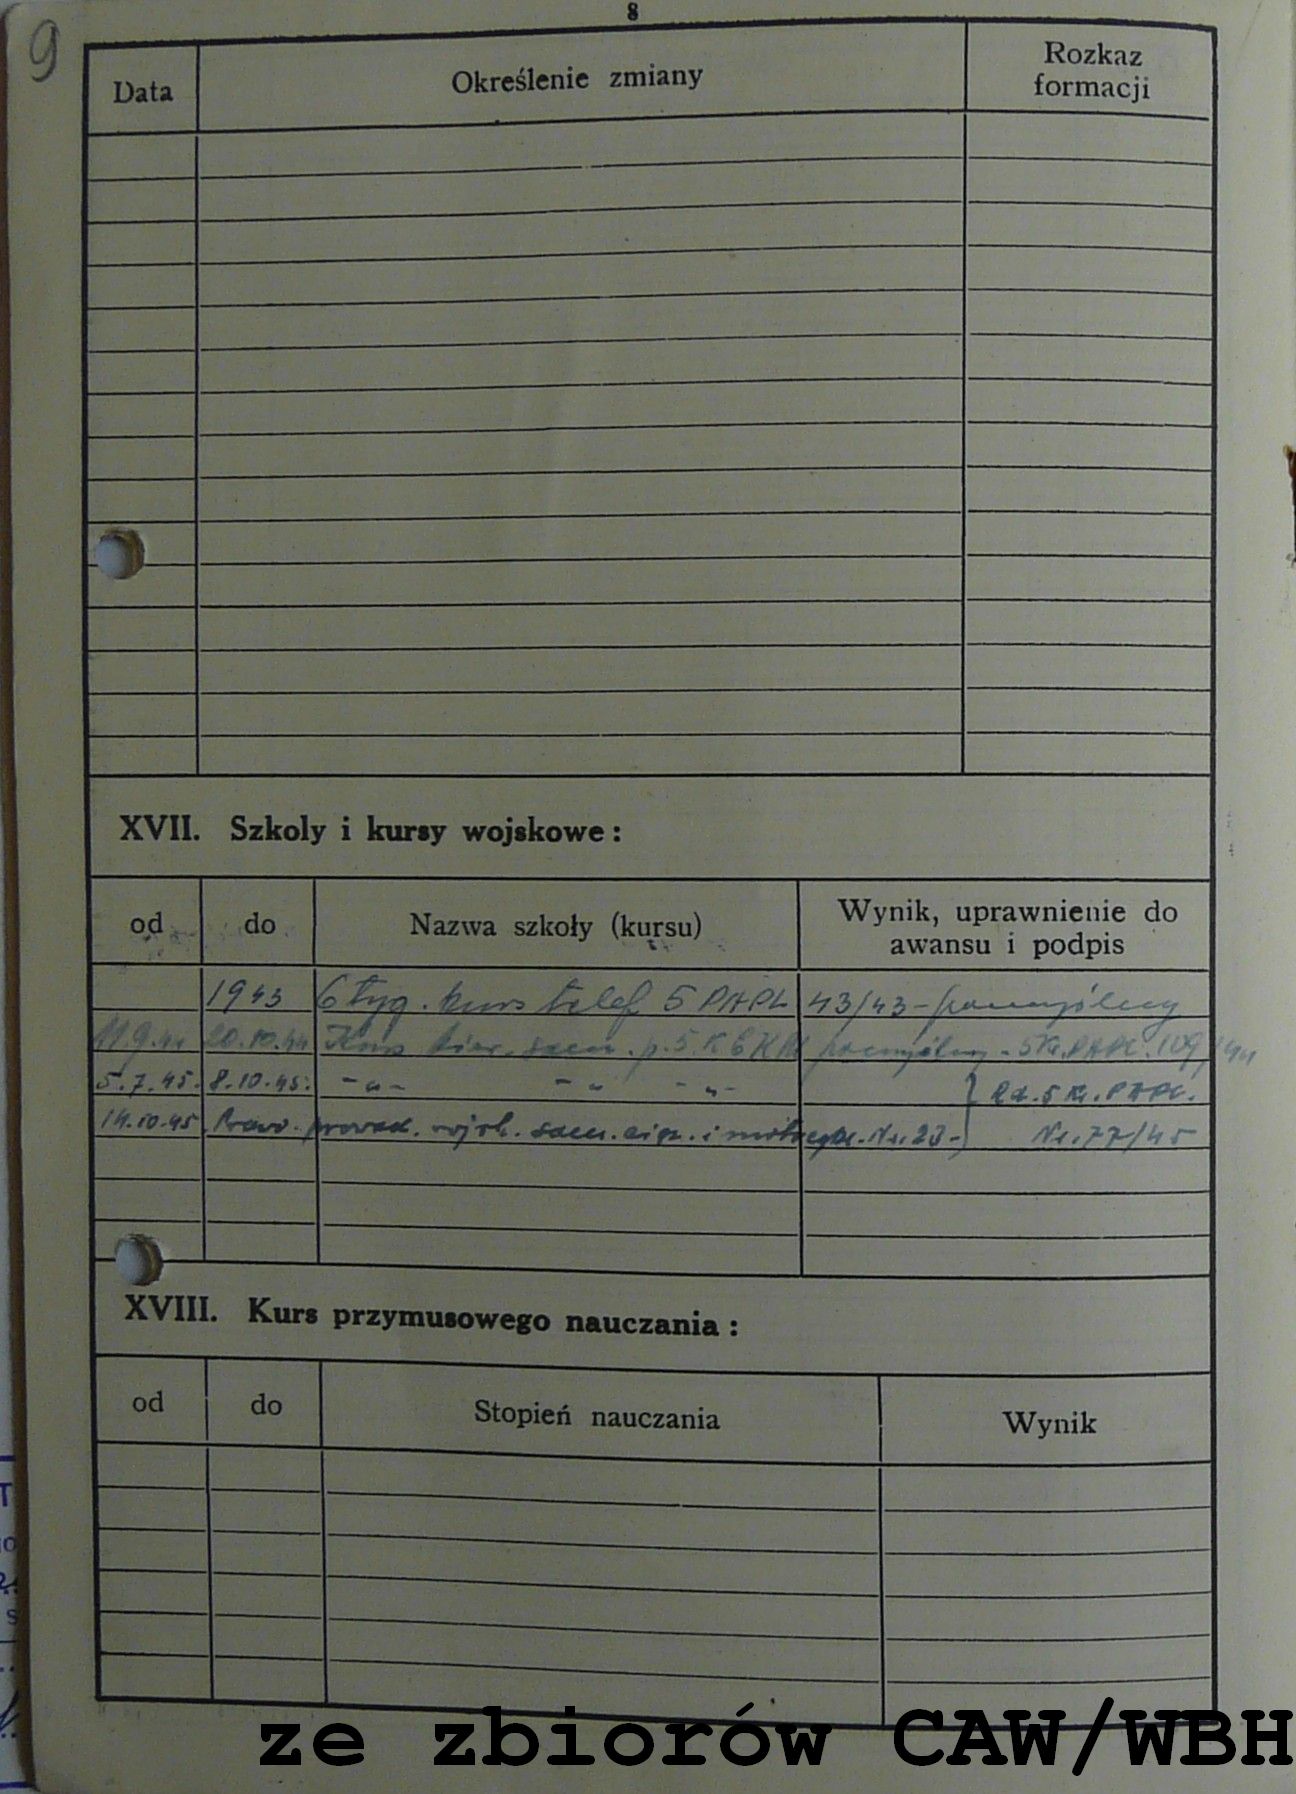 9
8
Data
Określenie zmiany
Rozkaz
formacji
XVII. Szkoly i kursy wojskowe:
od
do
Nazwa szkoły (kursu)
Wynik, uprawnienie do
awansu i podpis
1943 6 tyg. kurs telef 5 PAPL 43/43 - pomyślny
11.9.44 20.10.44 Kurs kier. sam. p. 5 pomyślny - 5 109/44
5.7.45. 8.10.45. - „ - - „ - „ - Rz. 5 K. PAPL.
14.10.45 Prawo prowadz. wojsk. sam. cięż. i motocykl. Nr. 23 - Nr. 77/45
XVIII. Kurs przymusowego nauczania:
od
do
Stopień nauczania
Wynik
ze zbiorów CAW/WBH